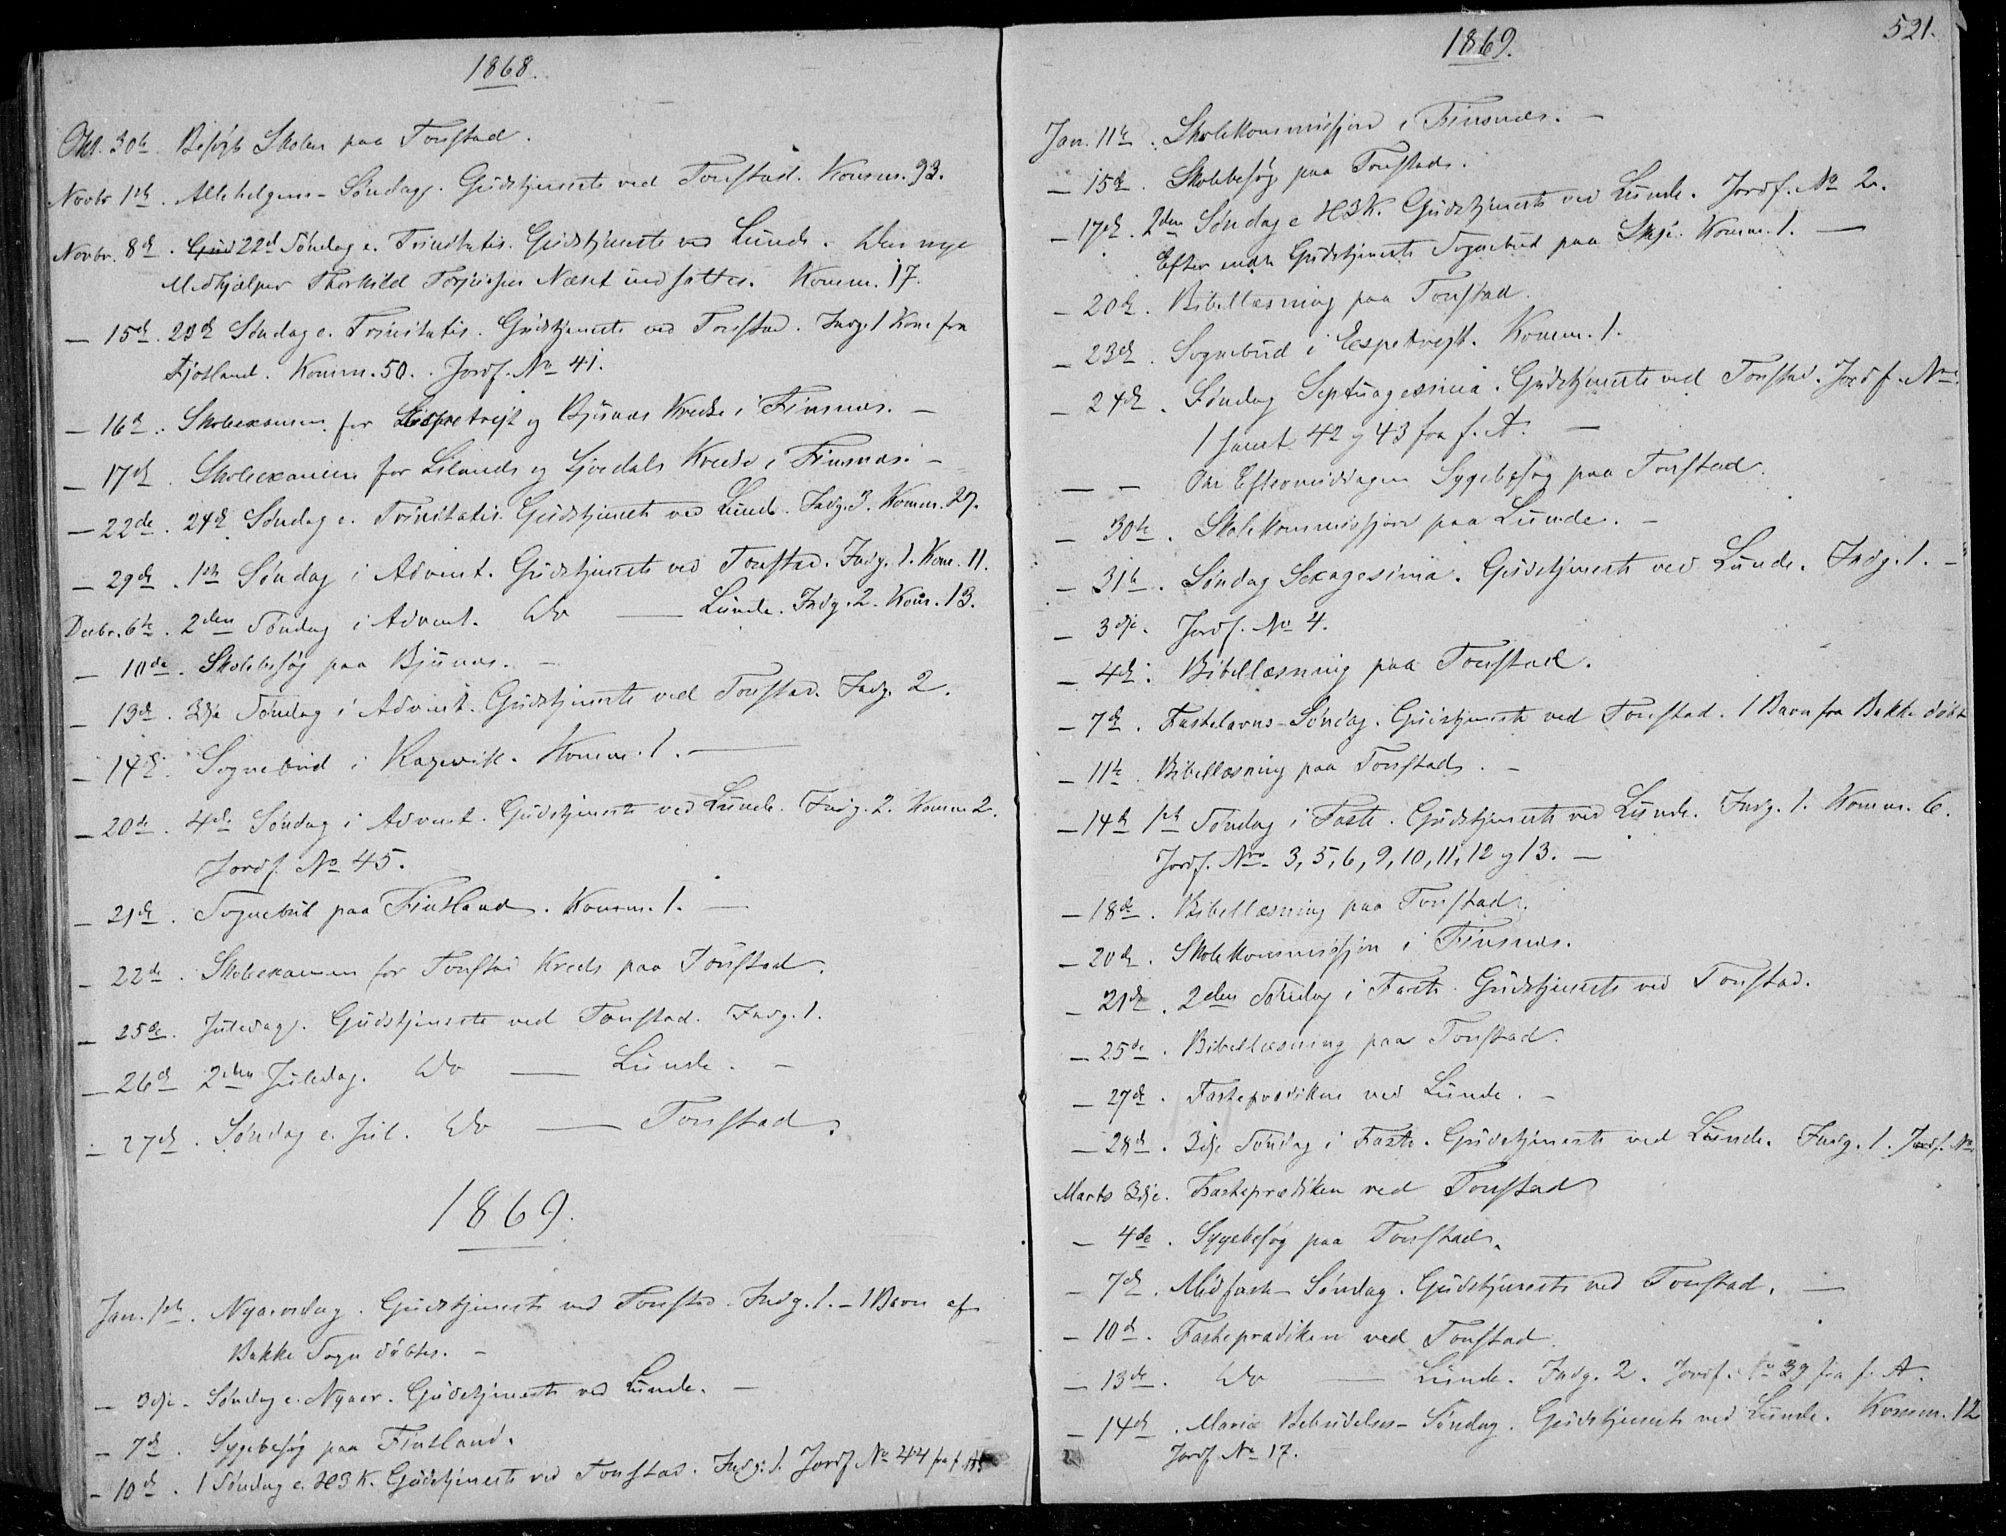 1868.
Okt. 30te. Besøgt Skolen paa Tonstad.
Novbr. 1ste. Allehelgens-Søndag. Gudstjeneste ved Tonstad. Komm. 93.
Novbr. 8de. 22de Søndag e. Trinitatis. Gudstjeneste ved Lunde. Den nye
Medhjælper Thorkild Næset indsattes. Komm. 17.
— 15de. 23de Søndag e. Trinitatis. Gudstjeneste ved Tonstad. Indg. 1 Kone fra
Fjotland. Komm. 50. Jordf. No 41.
— 16de. Skoleexamen for Espetvejt og Bjunæs Kredse i Finsnæs. —
— 17de. Skoleexamen for Lilands og Kredse i Finsnæs. —
— 22de. 24de Søndag e. Trinitatis. Gudstjeneste ved Lunde. Indg. 3. Komm. 27.
— 29de. 1ste Søndag i Advent. Gudstjeneste ved Tonstad. Indg. 1. Kom. 11.
Decbr. 6te. 2den Søndag i Advent. Do — Lunde. Indg. 2. Kom. 13.
— 10de. Skolebesøg paa Bjunæs. —
— 13de. 3dje Søndag i Advent. Gudstjeneste ved Tonstad. Indg. 2.
— 14de. Sognebud i Komm. 1. —
— 20de. 4de Søndag i Advent. Gudstjeneste ved Lunde. Indg. 2. Komm. 2.
Jordf. No 45.
— 21de. Sognebud paa Fintland. Komm. 1. —
— 22de. Skoleexamen for Tonstad Kreds paa Tonstad.
— 25de. Juledag. Gudstjeneste ved Tonstad. Indg. 1.
— 26de 2den Juledag. Do — Lunde. —
— 27de. Søndag e. Jul. Do — Tonstad.
1869.
Jan. 1ste. Nyaarsdag. Gudstjeneste ved Tonstad. Indg. 1. — 1 Barn af
Bakke Sogn døbtes. —
— 3dje. Søndag e. Nyaar. Gudstjeneste ved Lunde. —
— 7de. Sygebesøg paa Fintland.
— 10de. 1 Søndag e. H3K. Gudstjeneste ved Tonstad. Indg. 1. Jordf. No 44 fra f. A.
1869.
521.
Jan. 11te. Skolekommissjon i Finsnæs. —
— 15de. Skolebesøg paa Tonstad.
— 17de. 2den Søndag e H3K. Gudstjeneste ved Lunde. Jordf. No 2.
Efter endt Gudstjeneste Sognebud paa Komm. 1. —
— 20de. Bibellæsning paa Tonstad.
— 23de. Sognebud i Espetvejt. Komm. 1.
— 24de. Søndag Septuagesima. Gudstjeneste ved Tonstad. Jordf. No
1 samt 42 og 43 fra f. A. —
— — Om Eftermiddagen Sygebesøg paa Tonstad.
— 30te. Skolekommissjon paa Lunde. —
— 31te. Søndag Sexagesima. Gudstjeneste ved Lunde. Indg. 1. —
— 3dje. Jordf. No 4.
— 4de. Bibellæsning paa Tonstad.
— 7de. Fastelavns-Søndag. Gudstjeneste ved Tonstad. 1 Barn fra Bakke døbt
— 11te. Bibellæsning paa Tonstad. —
— 14de 1ste Søndag i Faste. Gudstjeneste ved Lunde. Indg. 1. Komm. 6.
Jordf. Nro 3, 5, 6, 9, 10, 11, 12 og 13. —
— 18de. Bibellæsning paa Tonstad.
— 20de. Skolekommissjon i Finsnæs.
— 21de. 2den Søndag i Faste. Gudstjeneste ved Tonstad.
— 25de. Bibellæsning paa Tonstad.
— 27de. Fasteprædiken ved Lunde. —
— 28de. 3dje Søndag i Faste. Gudstjeneste ved Lunde. Indg. 1. Jordf. No
Marts 3dje. Fasteprædiken ved Tonstad
— 4de. Sygebesøg paa Tonstad.
— 7de. Midfaste-Søndag. Gudstjeneste ved Tonstad. —
— 10de. Fasteprædiken ved Tonstad
— 13de. Do — Lunde. Indg. 2. Jordf. No 39 fra f. A.
— 14de. Mariæ Bebudelses-Søndag. Gudstjeneste ved Lunde. Komm. 12
Jordf. No 17.